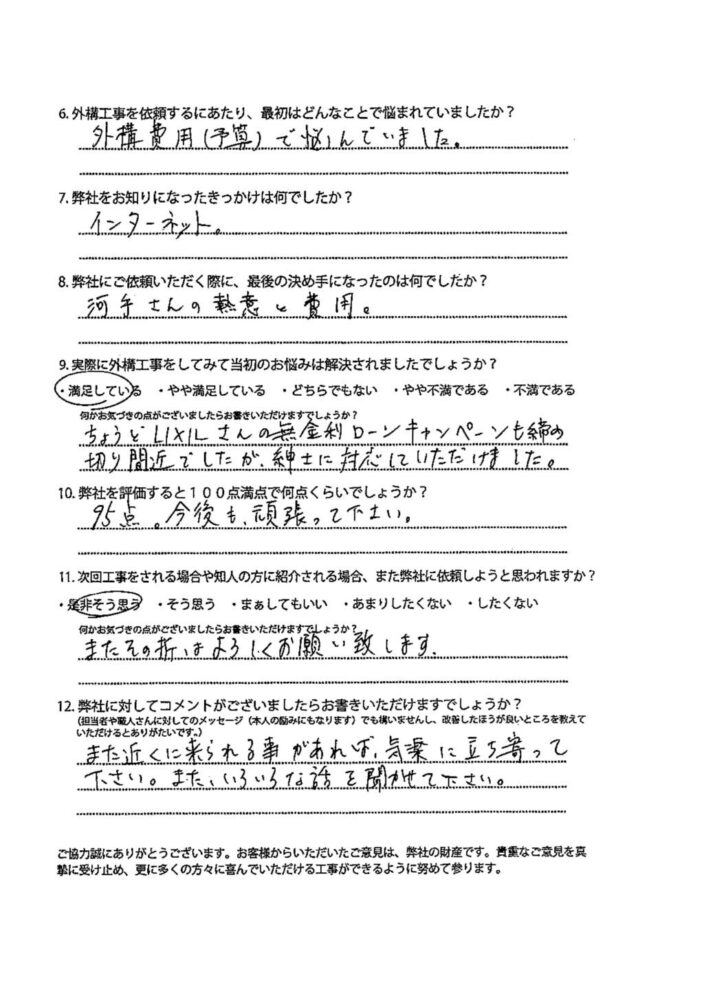 6. 外構工事を依頼するにあたり、最初はどんなことで悩まれていましたか？
外構費用(予算)で悩んでいました。
7. 弊社をお知りになったきっかけは何でしたか？
インターネット。
8. 弊社にご依頼いただく際に、最後の決め手になったのは何でしたか？
河手さんの熱意と費用。
9. 実際に外構工事をしてみて当初のお悩みは解決されましたでしょうか？
・満足している ・やや満足している ・どちらでもない ・やや不満である ・不満である
何かお気づきの点がございましたらお書きいただけますでしょうか？
ちょうどLIXILさんの無金利ローンキャンペーンも締め
切り間近でしたが、紳士に対応していただけました。
10. 弊社を評価すると１００点満点で何点くらいでしょうか？
95点。今後も、頑張って下さい。
11. 次回工事をされる場合や知人の方に紹介される場合、また弊社に依頼しようと思われますか？
・是非そう思う ・そう思う ・まぁしてもいい ・あまりしたくない ・したくない
何かお気づきの点がございましたらお書きいただけますでしょうか？
またその折はよろしくお願い致します.
12. 弊社に対してコメントがございましたらお書きいただけますでしょうか？
（担当者や職人さんに対してのメッセージ（本人の励みにもなります）でも構いませんし、改善したほうが良いところを教えて
いただけるとありがたいです。）
また近くに来られる事があれば、気楽に立ち寄って
下さい。また、いろいろな話を聞かせて下さい。
ご協力誠にありがとうございます。お客様からいただいたご意見は、弊社の財産です。貴重なご意見を真
摯に受け止め、更に多くの方々に喜んでいただける工事ができるように努めて参ります。